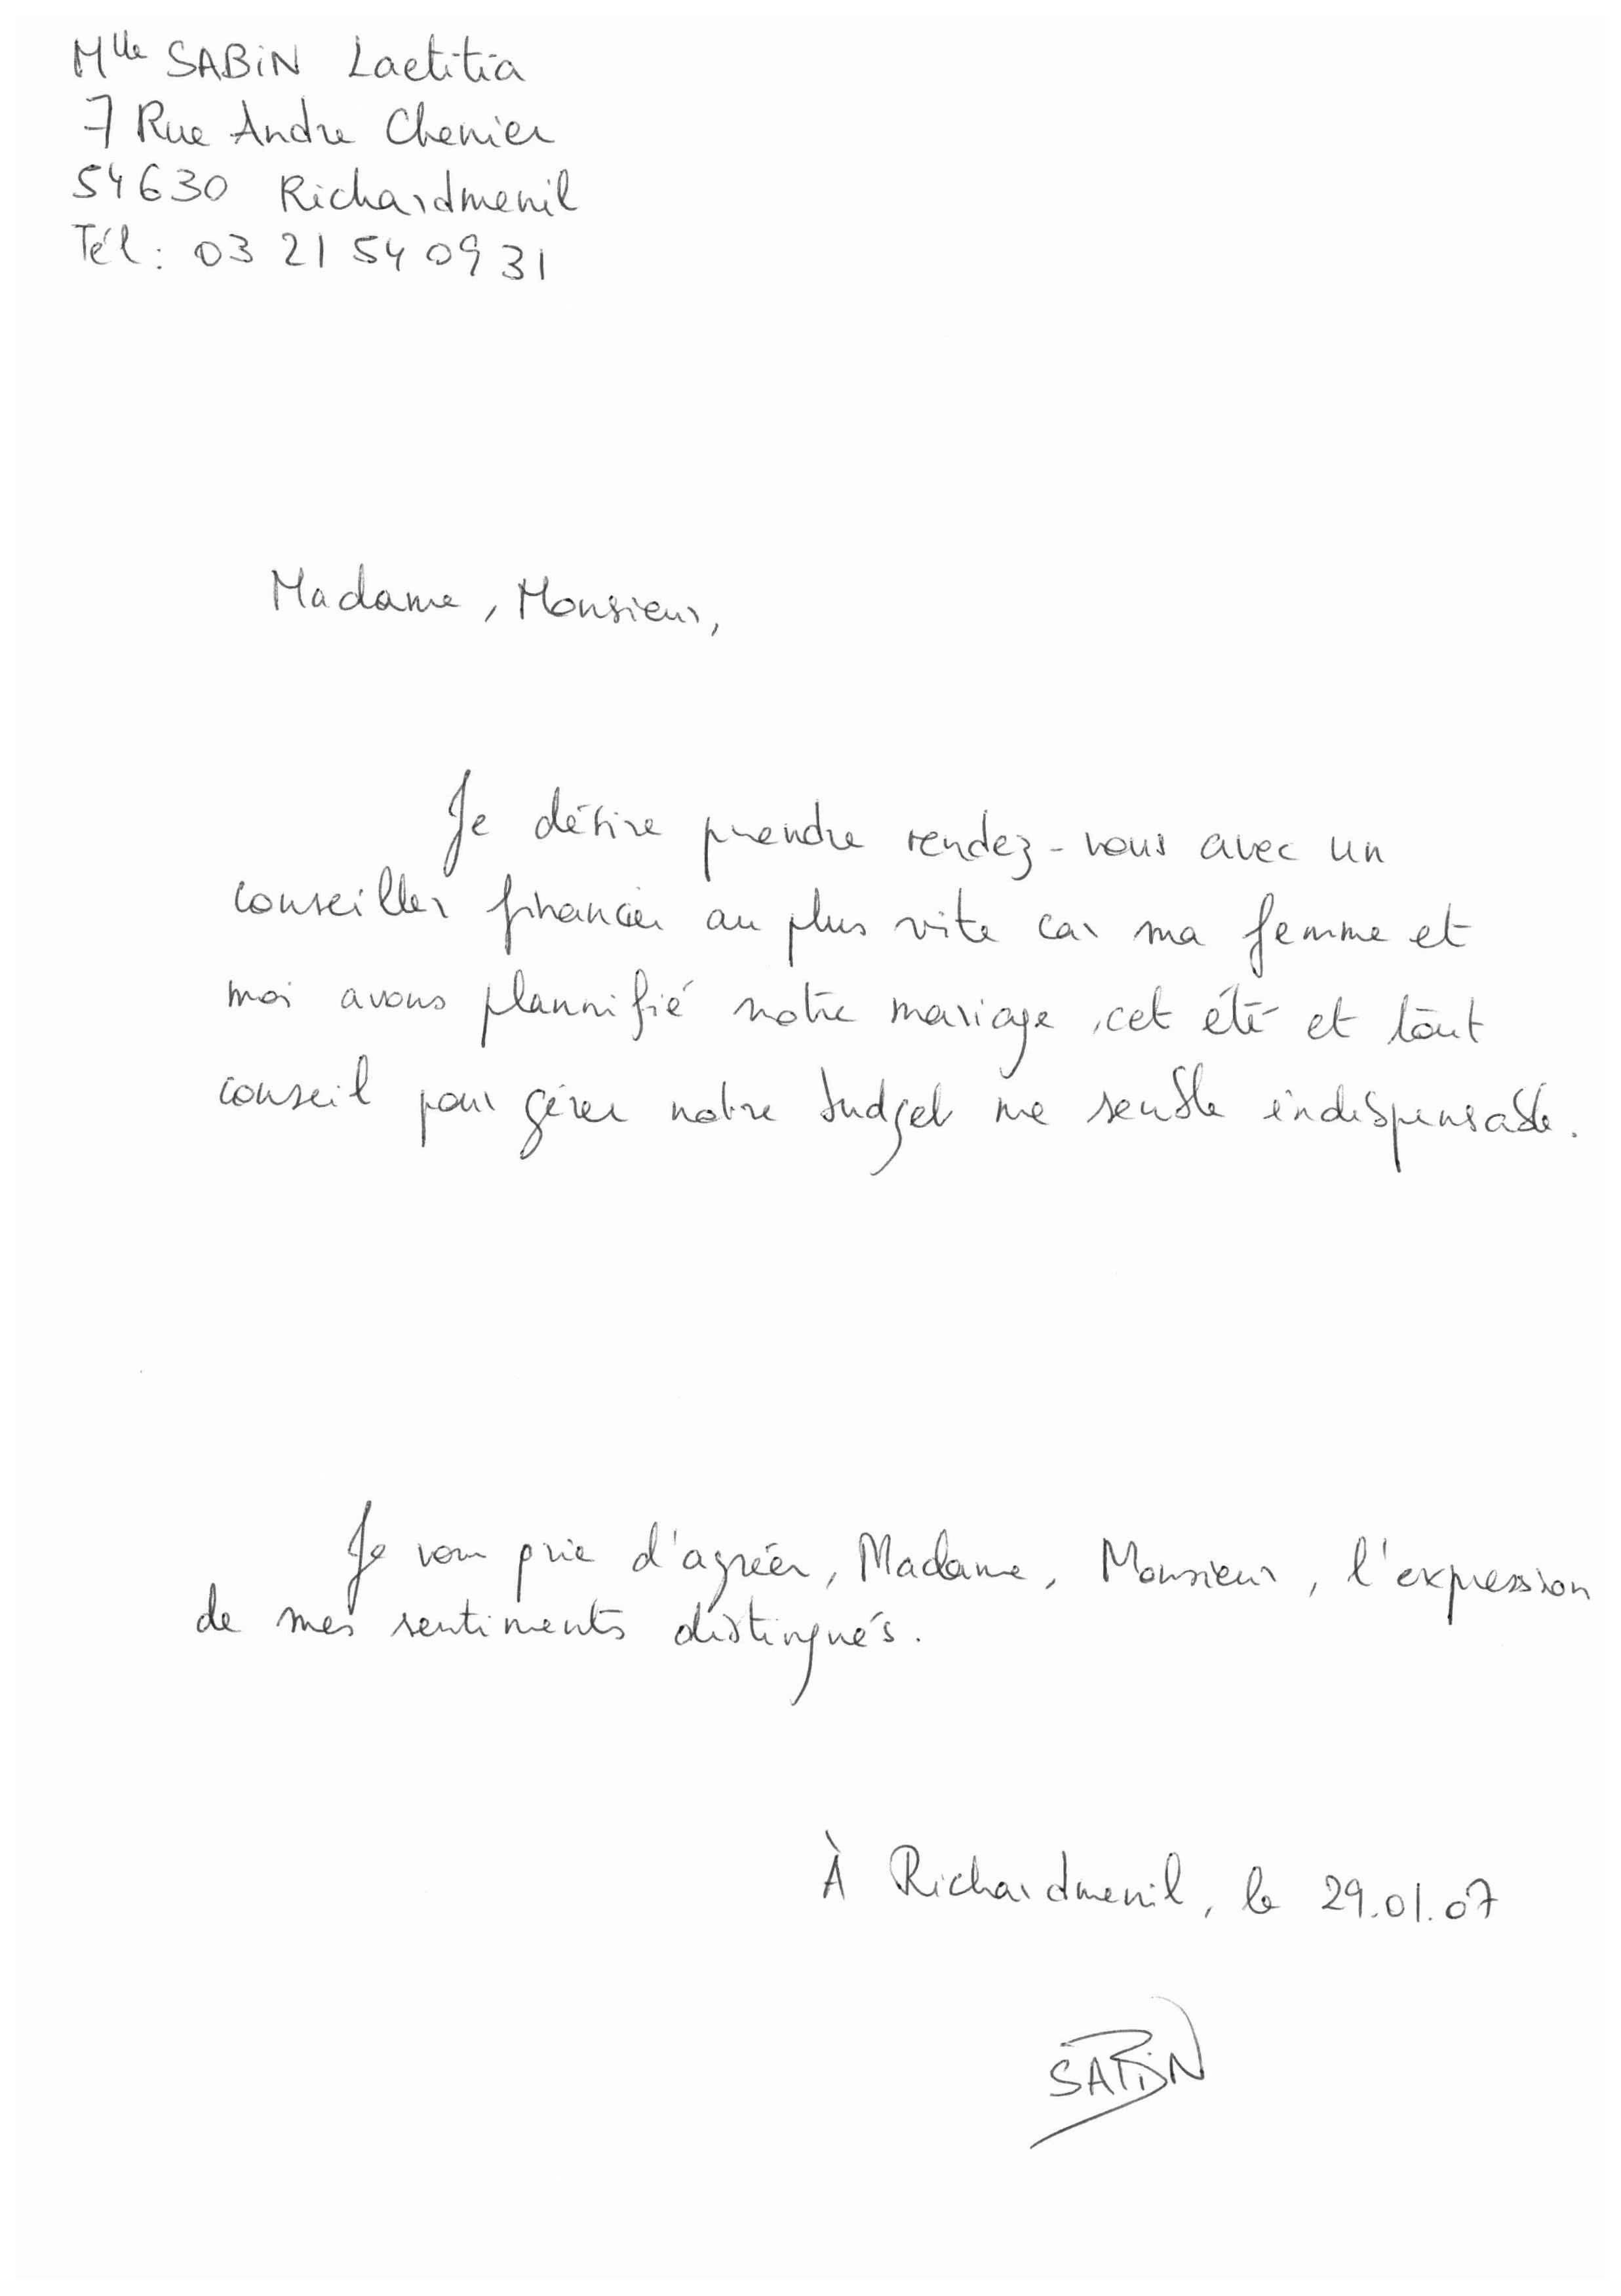 Mlle SABIN Laetitia
7 Rue Andre Chenier
54630 Richardmenil
Tél : 03 21 54 09 31
Madame, Monsieur,
Je désire prendre rendez-vous avec un
conseiller financier au plus vite car ma femme et
moi avons plannifié notre mariage cet été et tout
conseil pour gérer notre budget me semble indispensable.
Je vous prie d'agréer, Madame, Monsieur, l'expression
de mes sentiments distingués.
À Richardmenil, le 29.01.07
SABIN